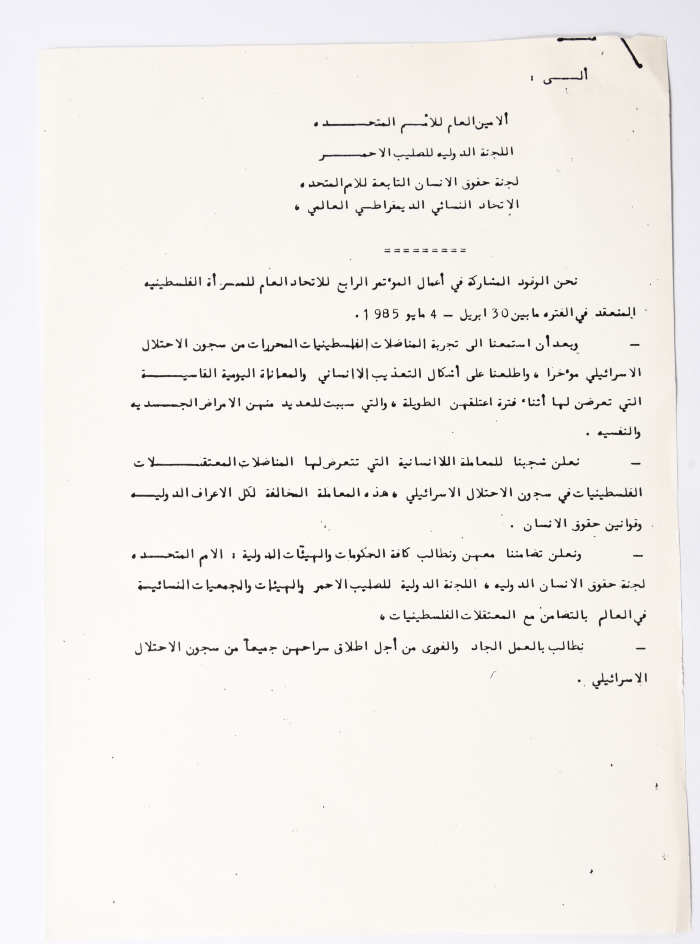 ألـــى :
ألامين العام للأمــم المتحــــده
اللجنة الدوليه للصليب الاحمـــر
لجنة حقوق الانسان التابعة للامم المتحده
الإتحاد النسائي الديمقراطــي العالمي ،
=========
نحن الوفود المشاركة في أعمال الموءتمر الرابع للاتحاد العام للمــرأة الفلسطينيه
المنعقد في الفتره مابين 30 ابريل – 4 مايو 1985 .
– وبعد أن استمعنا الى تجربة المناضلات الفلسطينيات المحررات من سجون الاحتلال
الاسرائيلي موءخرا ، واطلعنا على أشكال التعذيب اللاانساني والمعاناة اليومية القاسيــــة
التي تعرضن لها أثناء فترة اعتلقهن الطويلة ، والتي سببت للعديد منهن الامراض الجـــسديه
والنفسيه .
– نعلن شجبنا للمعاملة اللاانسانية التي تتعرض لها المناضلات المعتقـــــلات
الفلسطينيات في سجون الاحتلال الاسرائيلي ، هذه المعاملة المخالفة لكل الاعراف الدوليــه
وقوانين حقوق الانسان .
– ونعلن تضامننا معهن ونطالب كافة الحكومات والهيئات الدولية : الامم المتحــده
لجنة حقوق الانسان الدوليه ، اللجنة الدولية للصليب الاحمر والهيئات والجمعيات النسائيــة
في العالم بالتضامن مع المعتقلات الفلسطينيات ،
– نطالب بالعمل الجاد والفورى من أجل اطلاق سراحهن جميعاً من سجون الاحتلال
الاسرائيلي .